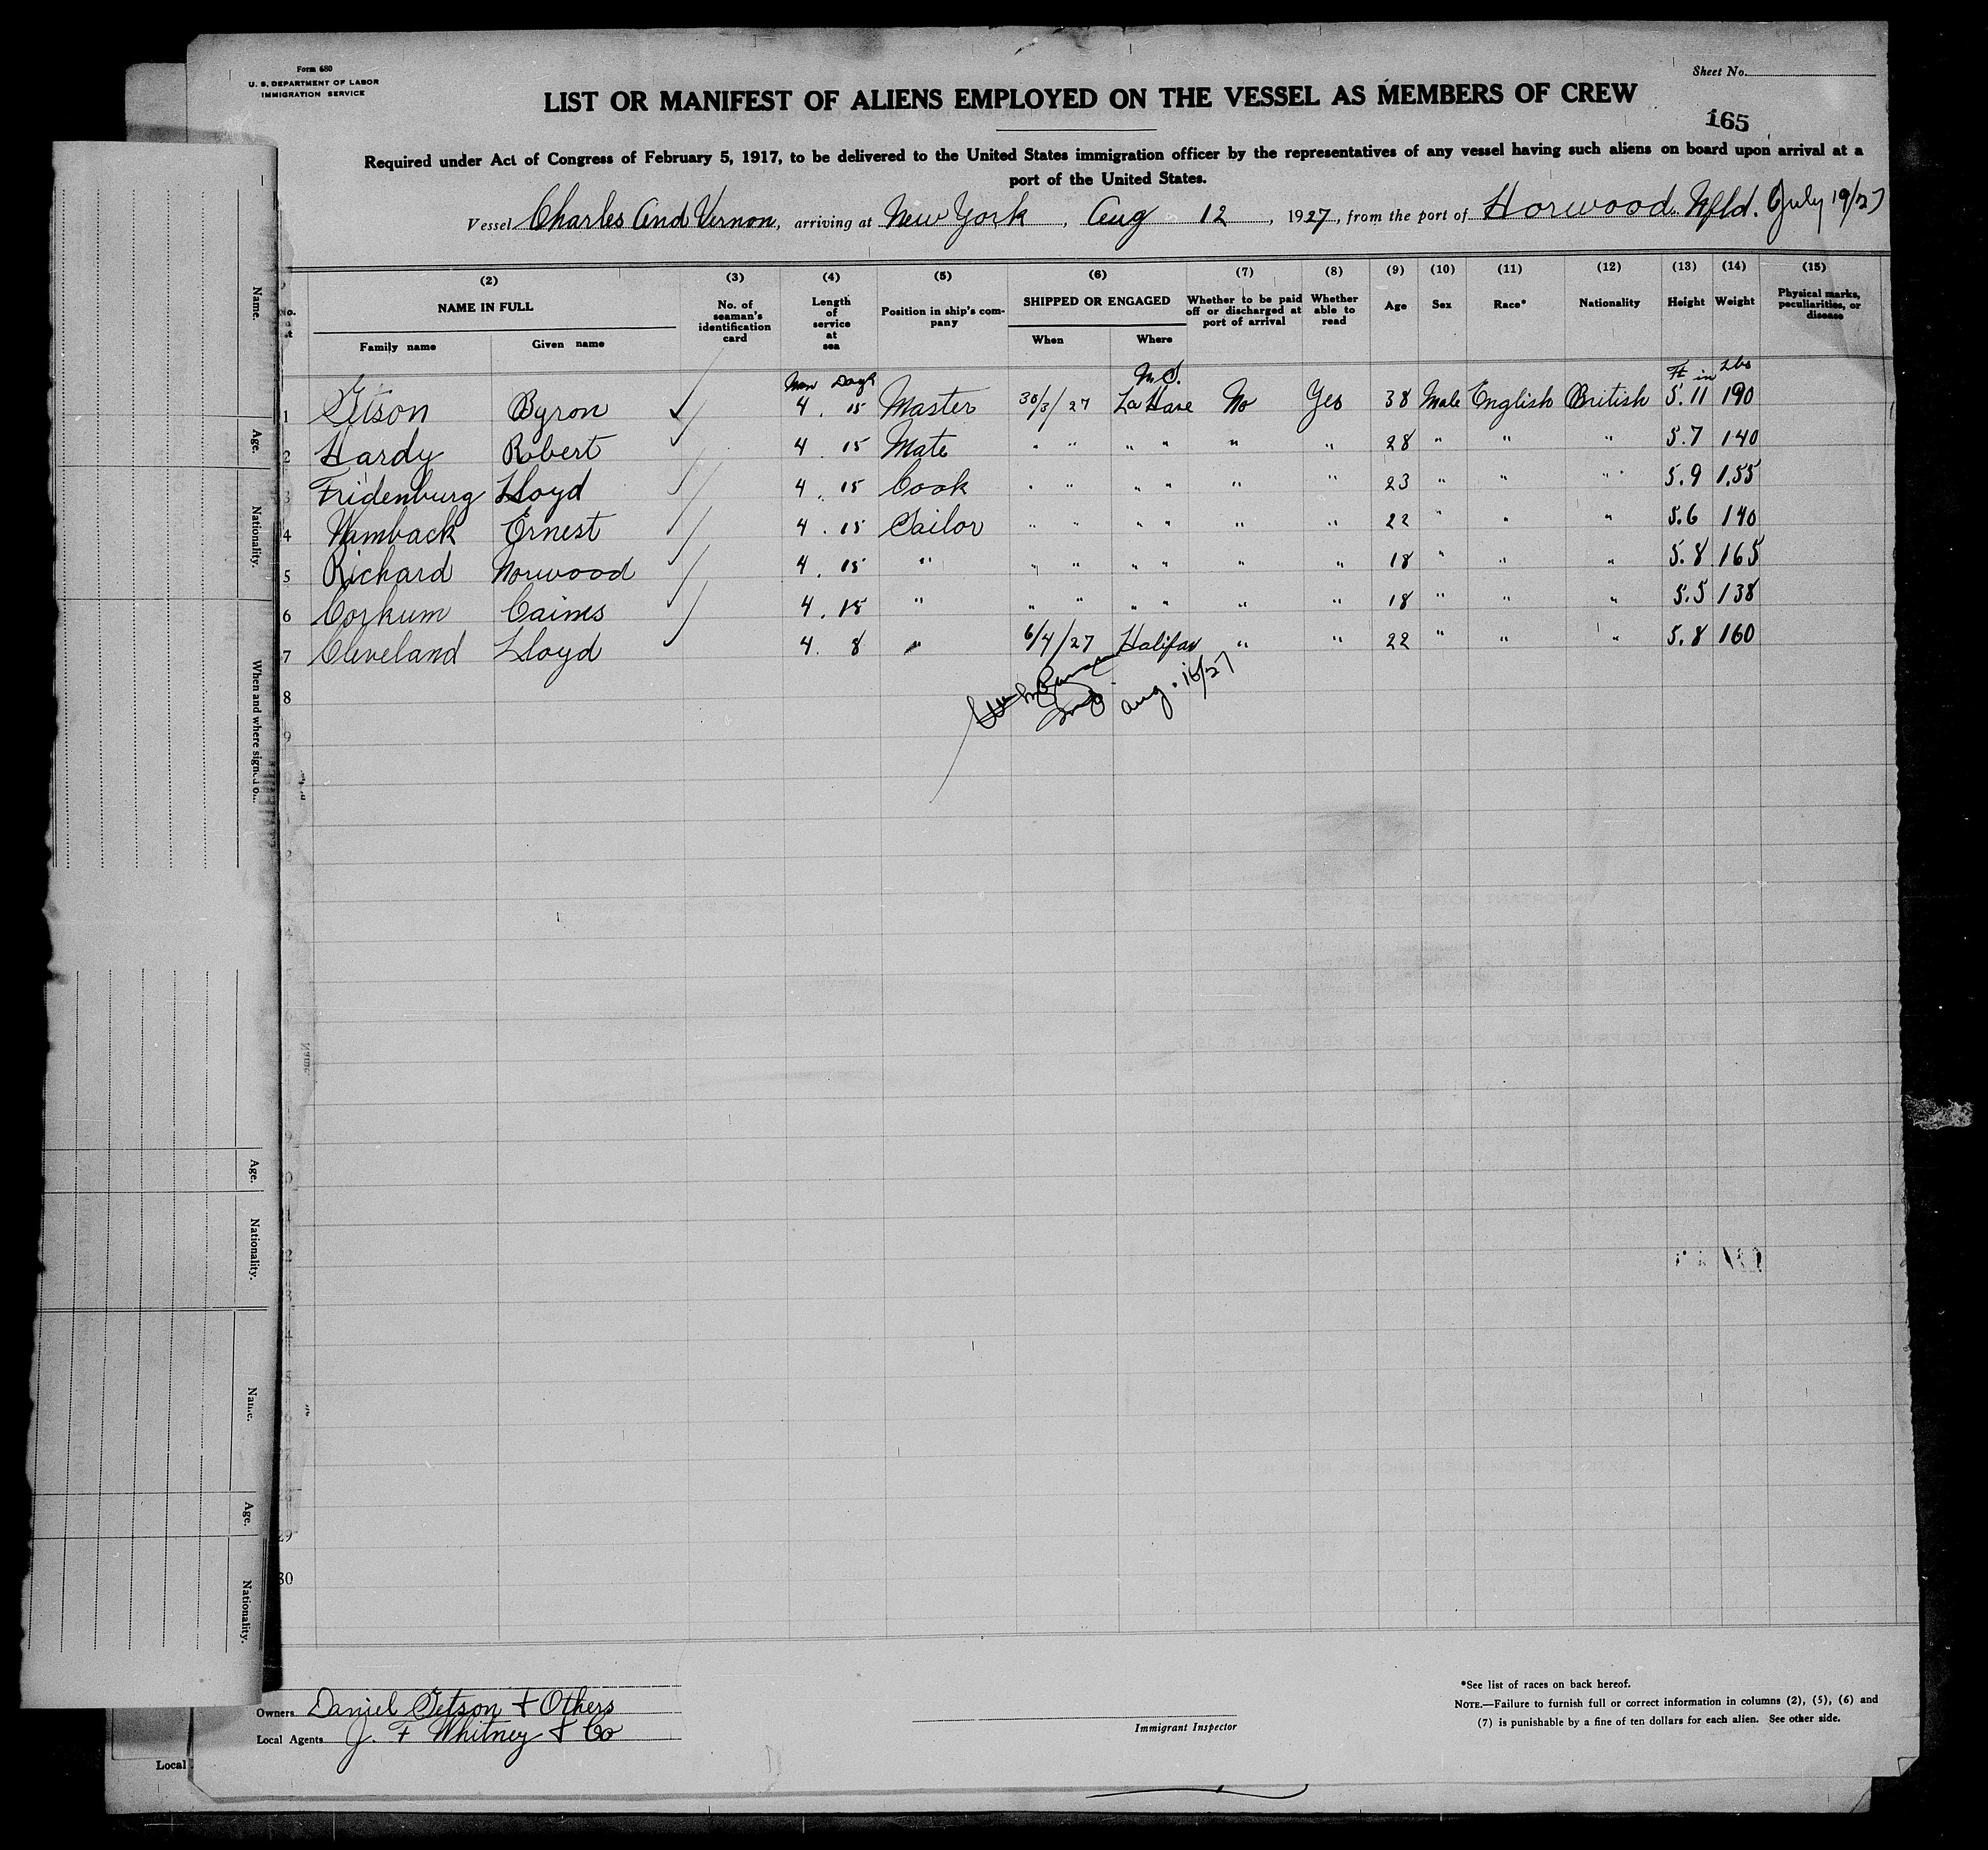 Form 680
U. S. DEPARTMENT OF LABOR
IMMIGRATION SERVICE
Sheet No.
LIST OR MANIFEST OF ALIENS EMPLOYED ON THE VESSEL AS MEMBERS OF CREW
165
Required under Act of Congress of February 5, 1917, to be delivered to the United States immigration officer by the representatives of any vessel having such aliens on board upon arrival at a
port of the United States.
Vessel Charles And Vernon, arriving at New York, Aug 12, 1927, from the port of Horwood Nfld. July 19/27
(2) (3) (4) (5) (6) (7) (8) (9) (10) (11) (12) (13) (14) (15)
No. NAME IN FULL No. of seaman's identification card Length of service at sea Position in ship's company SHIPPED OR ENGAGED Whether to be paid off or discharged at port of arrival Whether able to read Age Sex Race* Nationality Height Weight Physical marks, peculiarities, or disease
Family name Given name When Where
Days N.S. Ft in Lbs
1 Getson Byron ✓ 4 . 15 Master 30/3/27 La Have No Yes 38 Male English British 5.11 190
2 Hardy Robert ✓ 4 . 15 Mate " " " " " " 28 " " " 5.7 140
3 Fridenburg Lloyd ✓ 4 . 15 Cook " " " " " " 23 " " " 5.9 155
4 Wamback Ernest ✓ 4 . 15 Sailor " " " " " " 22 " " " 5.6 140
5 Richard Norwood ✓ 4 . 15 " " " " " " " 18 " " " 5.8 165
6 Corkum Cains ✓ 4 . 15 " " " " " " " 18 " " " 5.5 138
7 Cleveland Lloyd ✓ 4 . 8 " 6/4/27 Halifax " " 22 " " " 5.8 160
Aug. 16/27
8
9
29
30
Name.
Age.
Nationality
When and where signed o
Age.
Nationality.
Name.
Age.
Nationality.
Owners Daniel Getson & Others
Local Agents J. F Whitney & Co
Immigrant Inspector
*See list of races on back hereof.
NOTE.—Failure to furnish full or correct information in columns (2), (5), (6) and
(7) is punishable by a fine of ten dollars for each alien. See other side.
Local